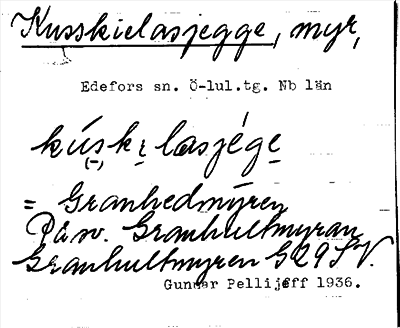 Kusskielasjegge, myr,
Edefors sn. Ö-lul.tg. Nb län
kús̩kе̮lasjégе̮
(-)
= Granhedmyren
På sv. Granhultmyran
Granhultmyren G29SV.
Gunnar Pellijeff 1936.